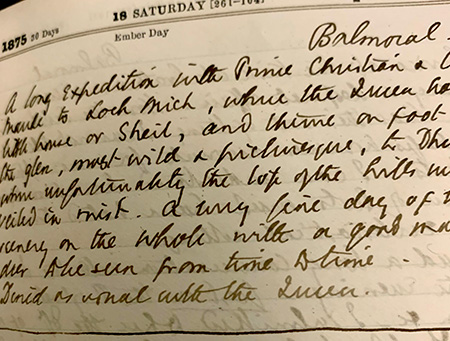 1875 20 Days
18 SATURDAY [261-104]
Ember Day
Balmoral.
A long Expedition with Prince Christian &
Maude to Loch Mick, where the Queen has
little house or Sheil, and thence on foot
the glen, most wild & picturesque, to Dhu
where unfortunately the tops of the hills we
veiled in mist. A very fine day of
scenery on the whole with a good ma
deer the sun from time to time.
Dined as usual with the Queen.